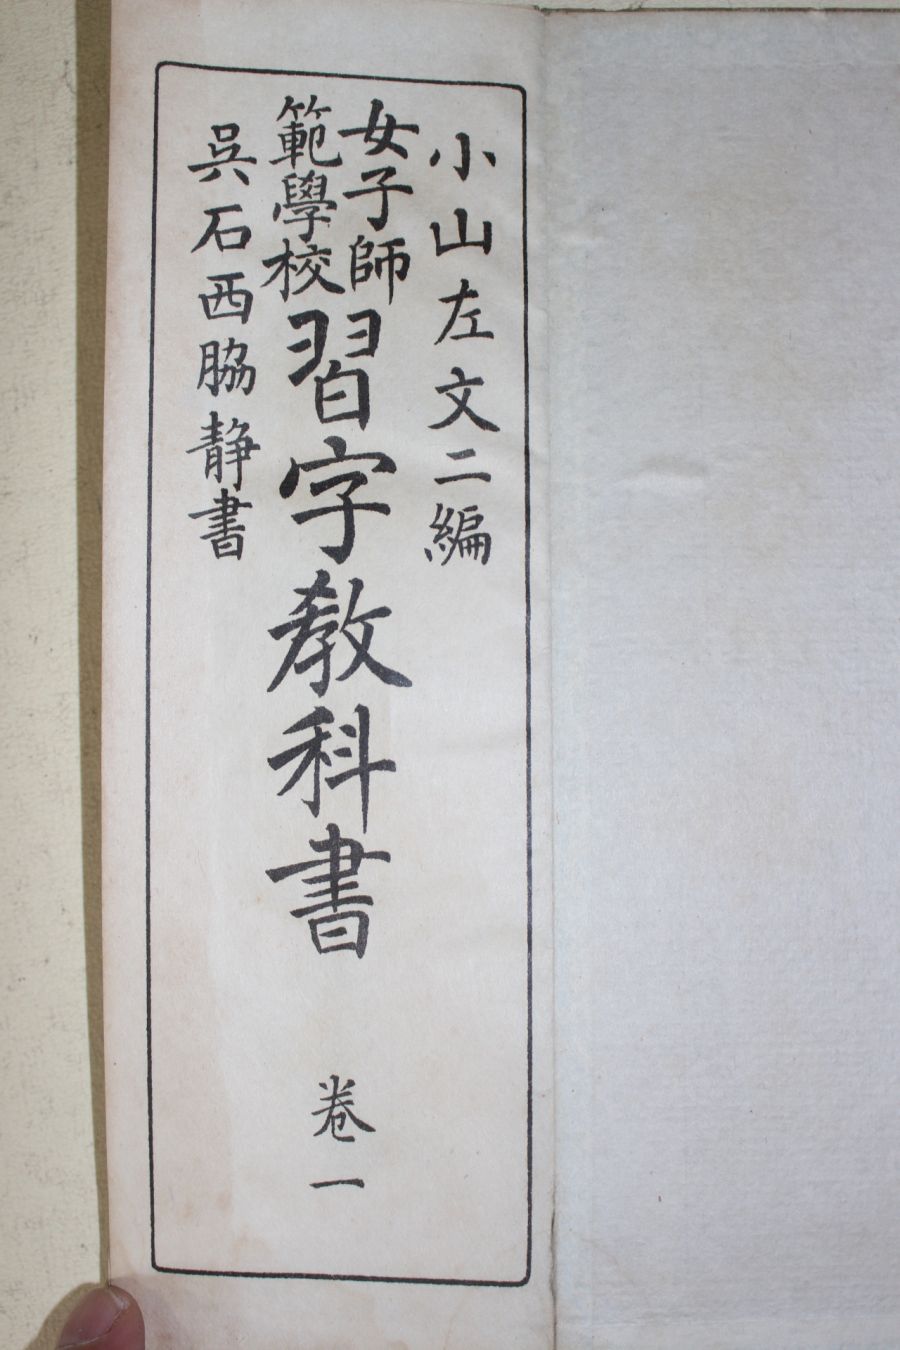 小山左文二編
女子師
範學校
習字教科書 卷一
吳石西脇静書